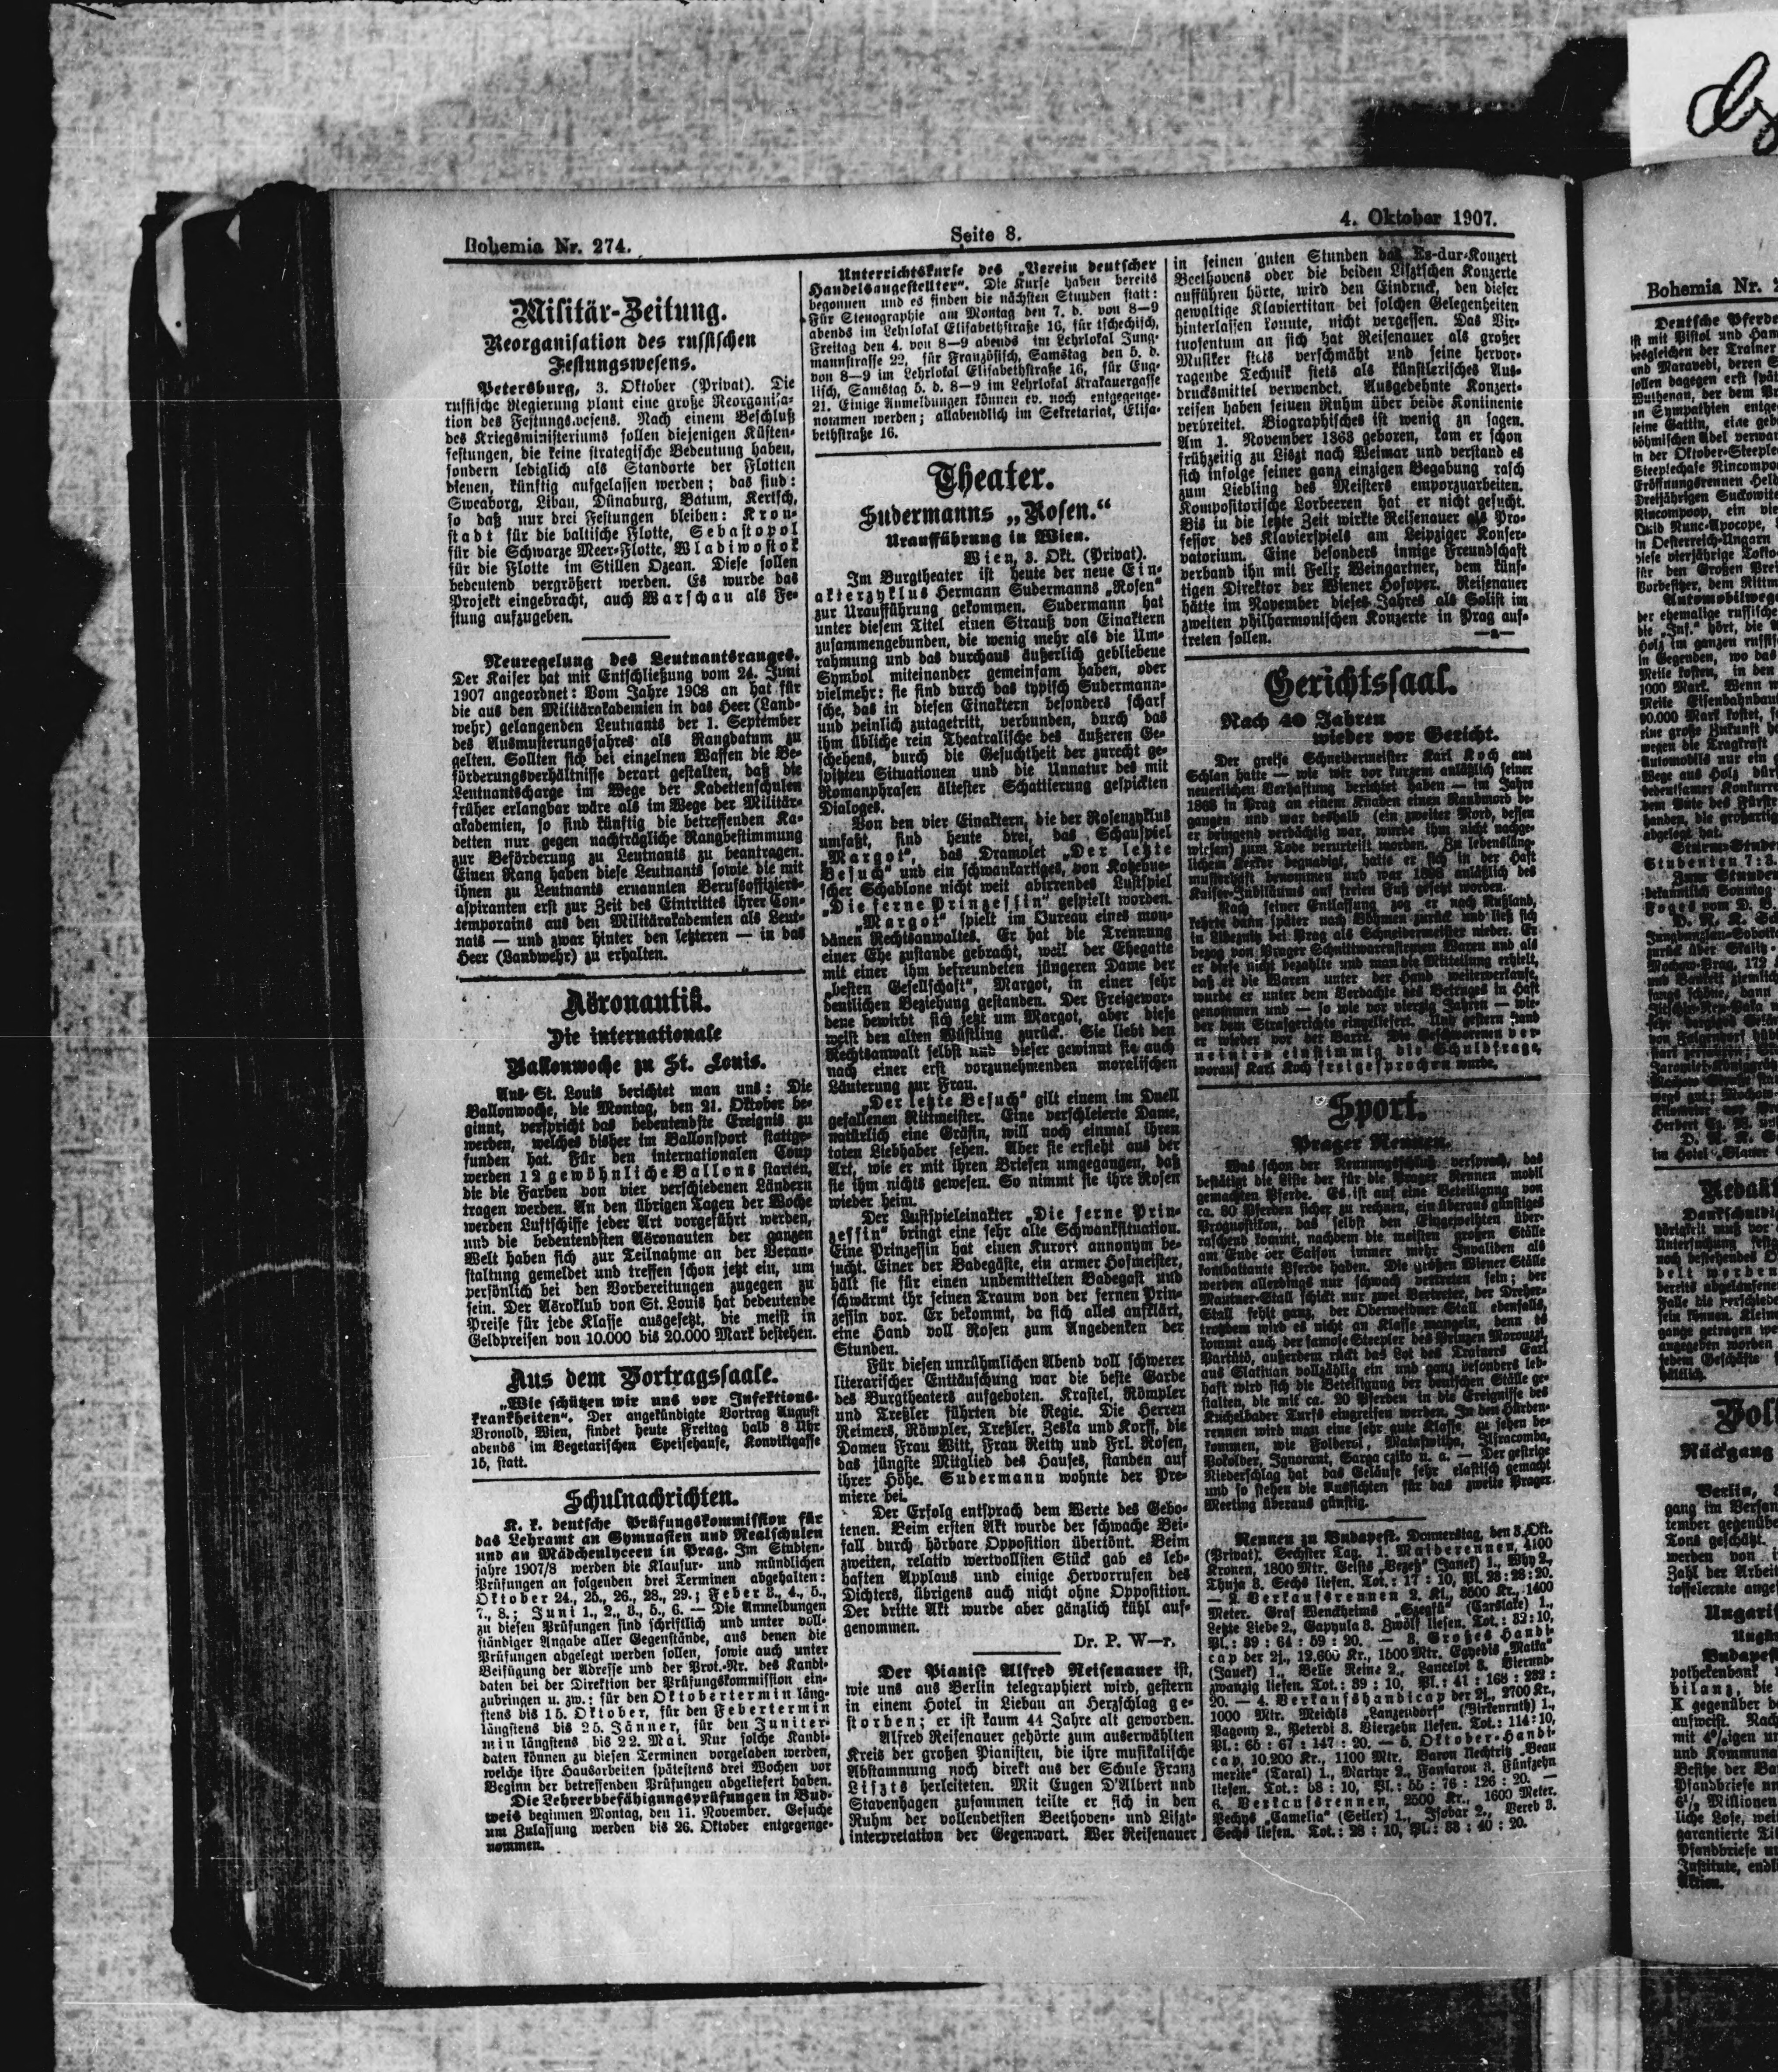 Bohemia Nr. 274.
Seite 8.
4. Oktober 1907.
Militär-Zeitung.
Reorganisation des russischen
Festungswesens.
Petersburg, 3. Oktober (Privat). Die
russische Regierung plant eine große Reorganisa-
tion des Festungswesens. Nach einem Beschluß
des Kriegsministeriums sollen diejenigen Küsten-
festungen, die keine strategische Bedeutung haben,
sondern lediglich als Standorte der Flotten
dienen, künftig aufgelassen werden; das sind:
Sweaborg, Libau, Dünaburg, Batum, Kertsch,
so daß nur drei Festungen bleiben: Kron-
stadt für die baltische Flotte, Sebastopol
für die Schwarze Meer-Flotte, Wladiwostok
für die Flotte im Stillen Ozean. Diese sollen
bedeutend vergrößert werden. Es wurde das
Projekt eingebracht, auch Warschau als Fe-
stung aufzugeben.
Neuregelung des Leutnantsranges.
Der Kaiser hat mit Entschließung vom 24. Juni
1907 angeordnet: Vom Jahre 1908 an hat für
die aus den Militärakademien in das Heer (Land-
wehr) gelangenden Leutnants der 1. September
des Ausmusterungsjahres als Rangdatum zu
gelten. Sollten sich bei einzelnen Waffen die Be-
förderungsverhältnisse derart gestalten, daß die
Leutnantscharge im Wege der Kadettenschulen
früher erlangbar wäre als im Wege der Militär-
akademien, so sind künftig die betreffenden Ka-
detten nur gegen nachträgliche Rangbestimmung
zur Beförderung zu Leutnants zu beantragen.
Einen Rang haben diese Leutnants sowie die mit
ihnen zu Leutnants ernannten Berufsoffiziers-
aspiranten erst zur Zeit des Eintrittes ihrer Con-
temporains aus den Militärakademien als Leut-
nats — und zwar hinter den letzteren — in das
Heer (Landwehr) zu erhalten.
Aëronautik.
Die internationale
Ballonwoche zu St. Louis.
Aus St. Louis berichtet man uns: Die
Ballonwoche, die Montag, den 21. Oktober be-
ginnt, verspricht das bedeutendste Ereignis zu
werden, welches bisher im Ballonsport stattge-
funden hat. Für den internationalen Coup
werden 12 gewöhnliche Ballons starten,
die die Farben von vier verschiedenen Ländern
tragen werden. An den übrigen Tagen der Woche
werden Luftschiffe jeder Art vorgeführt werden,
und die bedeutendsten Aëronauten der ganzen
Welt haben sich zur Teilnahme an der Veran-
staltung gemeldet und treffen schon jetzt ein, um
persönlich bei den Vorbereitungen zugegen zu
sein. Der Aëroklub von St. Louis hat bedeutende
Preise für jede Klasse ausgesetzt, die meist in
Geldpreisen von 10.000 bis 20.000 Mark bestehen.
Aus dem Vortragssaale.
„Wie schützen wir uns vor Infektions-
krankheiten“. Der angekündigte Vortrag August
Bronold, Wien, findet heute Freitag halb 8 Uhr
abends im Vegetarischen Speisehause, Konviktgasse
15, statt.
Schulnachrichten.
K. k. deutsche Prüfungskommission für
das Lehramt an Gymnasien und Realschulen
und an Mädchenlyceen in Prag. Im Studien-
jahre 1907/8 werden die Klausur- und mündlichen
Prüfungen an folgenden drei Terminen abgehalten:
Oktober 24., 25., 26., 28., 29.; Feber 3., 4., 5.,
7., 8.; Juni 1., 2., 3., 5., 6. — Die Anmeldungen
zu diesen Prüfungen sind schriftlich und unter voll-
ständiger Angabe aller Gegenstände, aus denen die
Prüfungen abgelegt werden sollen, sowie auch unter
Beifügung der Adresse und der Prot.-Nr. des Kandi-
daten bei der Direktion der Prüfungskommission ein-
zubringen u. zw.: für den Oktobertermin läng-
stens bis 15. Oktober, für den Febertermin
längstens bis 25. Jänner, für den Juniter-
min längstens bis 22. Mai. Nur solche Kandi-
daten können zu diesen Terminen vorgeladen werden,
welche ihre Hausarbeiten spätestens drei Wochen vor
Beginn der betreffenden Prüfungen abgeliefert haben.
Die Lehrerbefähigungsprüfungen in Bud-
weis beginnen Montag, den 11. November. Gesuche
um Zulassung werden bis 26. Oktober entgegenge-
nommen.
Unterrichtskurse des „Verein deutscher
Handelsangestellter“. Die Kurse haben bereits
begonnen und es finden die nächsten Stunden statt:
Für Stenographie am Montag den 7. d. von 8—9
abends im Lehrlokal Elisabethstraße 16, für tschechisch,
Freitag den 4. von 8—9 abends im Lehrlokal Jung-
mannstrasse 22, für Französisch, Samstag den 5. d.
von 8—9 im Lehrlokal Elisabethstraße 16, für Eng-
lisch, Samstag 5. d. 8—9 im Lehrlokal Krakauergasse
21. Einige Anmeldungen können ev. noch entgegenge-
nommen werden; allabendlich im Sekretariat, Elisa-
bethstraße 16.
Theater.
Sudermanns „Rosen.“
Uraufführung in Wien.
Wien, 3. Okt. (Privat).
Im Burgtheater ist heute der neue Ein-
akterzyklus Hermann Sudermanns „Rosen“
zur Uraufführung gekommen. Sudermann hat
unter diesem Titel einen Strauß von Einaktern
zusammengebunden, die wenig mehr als die Um-
rahmung und das durchaus äußerlich gebliebene
Symbol miteinander gemeinsam haben, oder
vielmehr: sie sind durch das typisch Sudermann-
sche, das in diesen Einaktern besonders scharf
und peinlich zutagetritt, verbunden, durch das
ihm übliche rein Theatralische des äußeren Ge-
schehens, durch die Gesuchtheit der zurecht ge-
spitzten Situationen und die Unnatur des mit
Romanphrasen ältester Schattierung gespickten
Dialoges.
Von den vier Einaktern, die der Rosenzyklus
umfaßt, sind heute drei, das Schauspiel
„Margot“, das Dramolet „Der letzte
Besuch“ und ein schwankartiges, von Kotzebue-
scher Schablone nicht weit abirrendes Lustspiel
„Die ferne Prinzessin“ gespielt worden.
„Margot“ spielt im Bureau eines mon-
dänen Rechtsanwaltes. Er hat die Trennung
einer Ehe zustande gebracht, weil der Ehegatte
mit einer ihm befreundeten jüngeren Dame der
„besten Gesellschaft“, Margot, in einer sehr
deutlichen Beziehung gestanden. Der Freigewor-
dene bewirbt sich jetzt um Margot, aber diese
weist den alten Wüstling zurück. Sie liebt den
Rechtsanwalt selbst und dieser gewinnt sie auch
nach einer erst vorzunehmenden moralischen
Läuterung zur Frau.
„Der letzte Besuch“ gilt einem im Duell
gefallenen Rittmeister. Eine verschleierte Dame,
natürlich eine Gräfin, will noch einmal ihren
toten Liebhaber sehen. Aber sie ersieht aus der
Art, wie er mit ihren Briefen umgegangen, daß
sie ihm nichts gewesen. So nimmt sie ihre Rosen
wieder heim.
Der Lustspieleinakter „Die ferne Prin-
zessin“ bringt eine sehr alte Schwanksituation.
Eine Prinzessin hat einen Kurort annonym be-
sucht. Einer der Badegäste, ein armer Hofmeister,
hält sie für einen unbemittelten Badegast und
schwärmt ihr seinen Traum von der fernen Prin-
zessin vor. Er bekommt, da sich alles aufklärt,
eine Hand voll Rosen zum Angedenken der
Stunden.
Für diesen unrühmlichen Abend voll schwerer
literarischer Enttäuschung war die beste Garde
des Burgtheaters aufgeboten. Krastel, Römpler
und Treßler führten die Regie. Die Herren
Reimers, Römpler, Treßler, Zeska und Korff, die
Damen Frau Witt, Frau Retty und Frl. Rosen,
das jüngste Mitglied des Hauses, standen auf
ihrer Höhe. Sudermann wohnte der Pre-
miere bei.
Der Erfolg entsprach dem Werte des Gebo-
tenen. Beim ersten Akt wurde der schwache Bei-
fall durch hörbare Opposition übertönt. Beim
zweiten, relativ wertvollsten Stück gab es leb-
haften Applaus und einige Hervorrufen des
Dichters, übrigens auch nicht ohne Opposition.
Der dritte Akt wurde aber gänzlich kühl auf-
genommen.
Dr. P. W—r.
Der Pianist Alfred Reisenauer ist,
wie uns aus Berlin telegraphiert wird, gestern
in einem Hotel in Liebau an Herzschlag ge-
storben; er ist kaum 44 Jahre alt geworden.
Alfred Reisenauer gehörte zum auserwählten
Kreis der großen Pianisten, die ihre musikalische
Abstammung noch direkt aus der Schule Franz
Liszts herleiteten. Mit Eugen D'Albert und
Stavenhagen zusammen teilte er sich in den
Ruhm der vollendetsten Beethoven- und Liszt-
interpretation der Gegenwart. Wer Reisenauer
in seinen guten Stunden das Es-dur-Konzert
Beethovens oder die beiden Lisztschen Konzerte
aufführen hörte, wird den Eindruck, den dieser
gewaltige Klaviertitan bei solchen Gelegenheiten
hinterlassen konnte, nicht vergessen. Das Vir-
tuosentum an sich hat Reisenauer als großer
Musiker stets verschmäht und seine hervor-
ragende Technik stets als künstlerisches Aus-
drucksmittel verwendet. Ausgedehnte Konzert-
reisen haben seinen Ruhm über beide Kontinente
verbreitet. Biographisches ist wenig zu sagen.
Am 1. November 1863 geboren, kam er schon
frühzeitig zu Liszt nach Weimar und verstand es
sich infolge seiner ganz einzigen Begabung rasch
zum Liebling des Meisters emporzuarbeiten.
Kompositorische Lorbeeren hat er nicht gesucht.
Bis in die letzte Zeit wirkte Reisenauer als Pro-
fessor des Klavierspiels am Leipziger Konser-
vatorium. Eine besonders innige Freundschaft
verband ihn mit Felix Weingartner, dem künf-
tigen Direktor der Wiener Hofoper. Reisenauer
hätte im November dieses Jahres als Solist im
zweiten philharmonischen Konzerte in Prag auf-
treten sollen.
Gerichtssaal.
Nach 40 Jahren
wieder vor Gericht.
Der greise Schneidermeister Karl Koch aus
Schlan hatte — wie wir vor kurzem anläßlich seiner
neuerlichen Verhaftung berichtet haben — im Jahre
1868 in Prag an einem Knaben einen Raubmord be-
gangen und war deshalb (ein zweiter Mord, dessen
er dringend verdächtig war, wurde ihm nicht nachge-
wiesen) zum Tode verurteilt worden. Zu lebensläng-
lichem Kerker begnadigt, hatte er sich in der Haft
musterhaft benommen und war 1898 anläßlich des
Kaiser-Jubiläums auf freien Fuß gesetzt worden.
Nach seiner Entlassung zog er nach Rußland,
kehrte dann später nach Böhmen zurück und ließ sich
in Libeznitz bei Prag als Schneidermeister nieder. Er
bezog von Prager Schnittwarenfirmen Waren und als
er diese nicht bezahlte und man die Mitteilung erhielt,
daß er die Waren unter der Hand weiterverkaufe,
wurde er unter dem Verdachte des Betruges in Haft
genommen und — so wie vor vierzig Jahren — wie-
der dem Strafgerichte eingeliefert. Und gestern stand
er wieder vor der Barre. Die Geschworenen ver-
neinten einstimmig die Schuldfrage,
worauf Karl Koch freigesprochen wurde.
Sport.
Prager Rennen.
Was schon der Nennungsschluß versprach, das
bestätigt die Liste der für die Prager Rennen mobil
gemachten Pferde. Es ist auf eine Beteiligung von
ca. 80 Pferden sicher zu rechnen, ein überaus günstiges
Prognostikon, das selbst den Eingeweihten über-
raschend kommt, nachdem die meisten großen Ställe
am Ende der Saison immer mehr Invaliden als
kombattante Pferde haben. Die großen Wiener Ställe
werden allerdings nur schwach vertreten sein; der
Mautner-Stall schickt nur zwei Vertreter, der Dreher-
Stall fehlt ganz, der Oberweidner Stall ebenfalls,
trotzdem wird es nicht an Klasse mangeln, denn es
kommt auch der famose Steepler des Prinzen
außerdem rückt das Lot des Trainers Earl
aus Slatinan vollzählig ein und ganz besonders leb-
haft wird sich die Beteiligung der deutschen Ställe ge-
stalten, die mit ca. 20 Pferden in die Ereignisse des
Kuchelbader Turfs eingreifen werden. In den Hürden-
rennen wird man eine sehr gute Klasse zu sehen be-
kommen, wie
Ignorant, u. a. — Der gestrige
Niederschlag hat das Geläufe sehr elastisch gemacht
und so stehen die Aussichten für das zweite Prager
Meeting überaus günstig.
Rennen zu Budapest. Donnerstag, den 3. Okt.
(Privat). Sechster Tag. 1. Maiderennen, 4100
Kronen, 1800 Mtr. (Janek) 1., Why 2.,
Thuja 3. Sechs liefen. Tot.: 17 : 10, Pl. 28 : 28 : 20.
— 2. Verkaufsrennen 2. Kl., 3500 Kr., 1400
Meter. Graf Wenckheims „Szegfü“ (Carslake) 1.,
Letzte Liebe 2., Zwölf liefen. Tot.: 32 : 10,
Pl.: 39 : 64 : 59 : 20. — 3. Großes Handi-
cap der 2j., 12.600 Kr., 1500 Mtr. „Matka“
(Janek) 1., Belle Reine 2., Lancelot 3. Vierund-
zwanzig liefen. Tot.: 39 : 10, Pl.: 41 : 168 : 232 :
20. — 4. Verkaufshandicap der 2j., 2700 Kr.,
1000 Mtr. Meichls „Lanzendorf“ (Birkenruth) 1.,
Pagony 2., Peterdi 3. Vierzehn liefen. Tot.: 114 : 10,
Pl.: 65 : 67 : 147 : 20. — 5. Oktober-Handi-
cap, 10.200 Kr., 1100 Mtr. Baron Nechtritz „Beau
merite“ (Taral) 1., Martyr 2., Fanfaron 3. Fünfzehn
liefen. Tot.: 58 : 10, Pl.: 55 : 76 : 126 : 20. —
6. Verkaufsrennen, 2500 Kr., 1600 Meter.
Pechys „Camelia“ (Seiler) 1., Isobar 2., Vereb 3.
Sechs liefen. Tot.: 28 : 10, Pl.: 33 : 40 : 20.
Bohemia Nr.